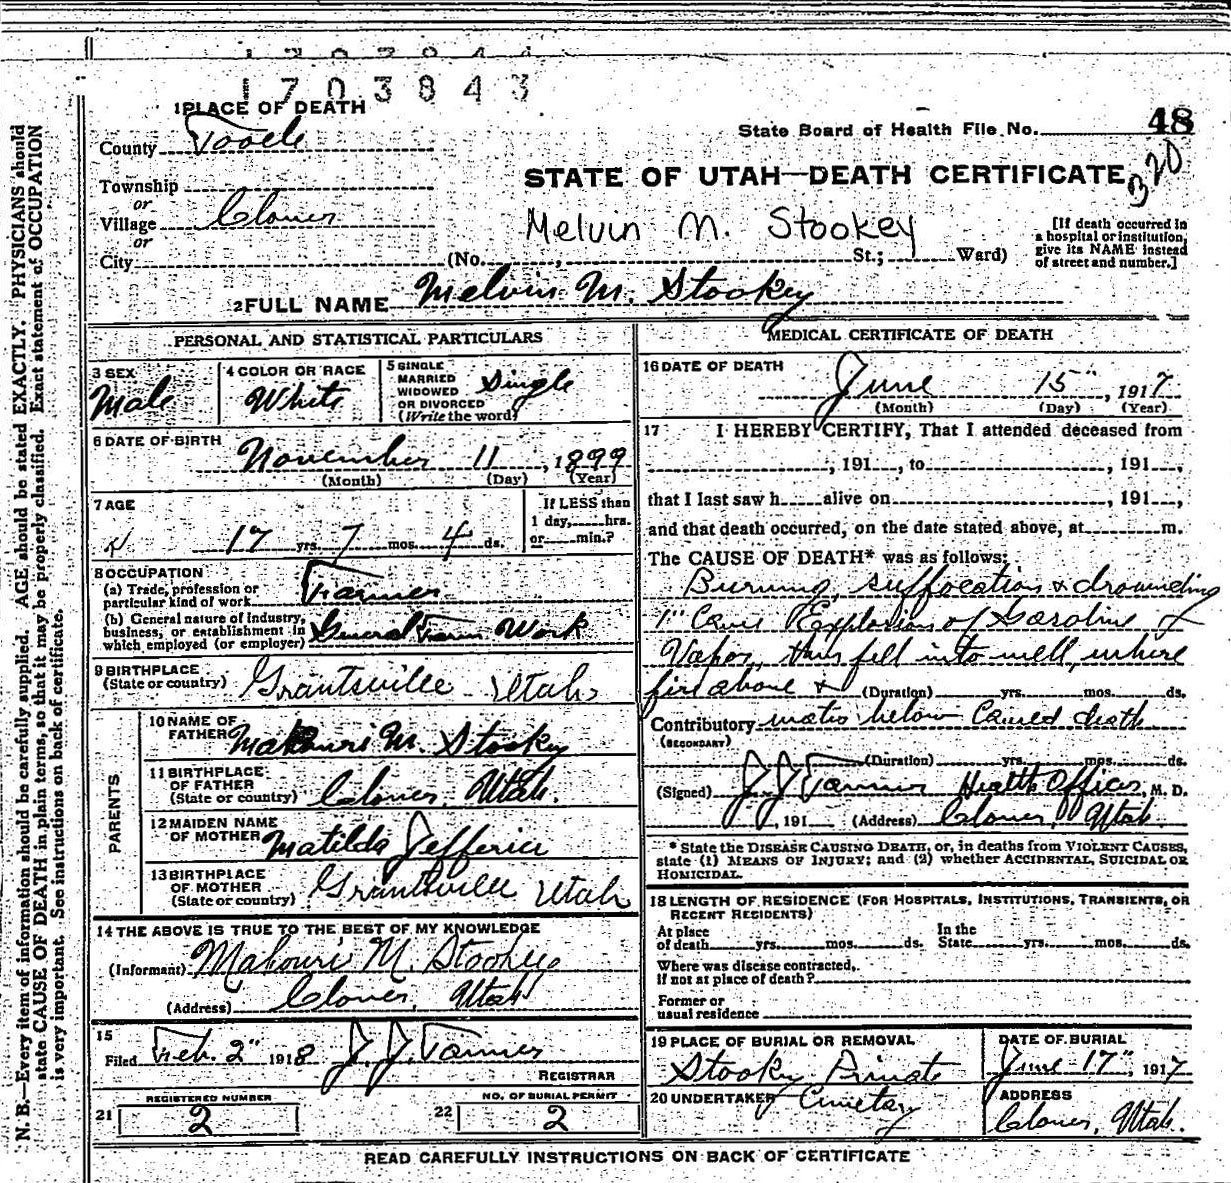 1703843
1 PLACE OF DEATH
State Board of Health File No. 48
County Tooele
STATE OF UTAH—DEATH CERTIFICATE
320
Township
or
Village Clover
Melvin M. Stookey
[If death occurred in
a hospital or institution,
give its NAME instead
of street and number.]
or
City (No. , St.; Ward)
2 FULL NAME Melvin M. Stookey
PERSONAL AND STATISTICAL PARTICULARS
3 SEX
Male
4 COLOR OR RACE
White
5 SINGLE
MARRIED
WIDOWED
OR DIVORCED
(Write the word)
Single
6 DATE OF BIRTH
November 11, 1899
(Month) (Day) (Year)
7 AGE
17 yrs. 7 mos. 4 ds.
If LESS than
1 day, hrs.
or min.?
8 OCCUPATION
(a) Trade, profession or
particular kind of work Farmer
(b) General nature of industry,
business, or establishment in
which employed (or employer) General Farm Work
9 BIRTHPLACE
(State or country) Grantsville Utah
PARENTS
10 NAME OF
FATHER Mahouri M. Stookey
11 BIRTHPLACE
OF FATHER
(State or country) Clover, Utah.
12 MAIDEN NAME
OF MOTHER Matilda Jefferies
13 BIRTHPLACE
OF MOTHER
(State or country) Grantsville Utah
14 THE ABOVE IS TRUE TO THE BEST OF MY KNOWLEDGE
(Informant) Mahouri M. Stookey
(Address) Clover, Utah
15
Filed Feb. 2" 1918 J. J. Tanner
REGISTRAR
21 REGISTERED NUMBER
2
22 NO. OF BURIAL PERMIT
2
MEDICAL CERTIFICATE OF DEATH
16 DATE OF DEATH
June 15", 1917
(Month) (Day) (Year)
17 I HEREBY CERTIFY, That I attended deceased from
, 191 , to , 191 ,
that I last saw h alive on , 191 ,
and that death occurred, on the date stated above, at m.
The CAUSE OF DEATH* was as follows:
Burning, suffocation & drounding
1" Cause Explosion of Gasoline
Vapor, thus fell into well, where
fire above & (Duration) yrs. mos. ds.
Contributory water below Caused death
(SECONDARY)
(Duration) yrs. mos. ds.
(Signed) J. J. Tanner Health Officer, M. D.
, 191 (Address) Clover, Utah.
* State the DISEASE CAUSING DEATH, or, in deaths from VIOLENT CAUSES,
state (1) MEANS OF INJURY; and (2) whether ACCIDENTAL, SUICIDAL OR
HOMICIDAL.
18 LENGTH OF RESIDENCE (FOR HOSPITALS, INSTITUTIONS, TRANSIENTS, OR
RECENT RESIDENTS)
At place
of death yrs. mos. ds.
In the
State yrs. mos. ds.
Where was disease contracted,
if not at place of death?
Former or
usual residence
19 PLACE OF BURIAL OR REMOVAL
Stookey Private
Cemetary
DATE OF BURIAL
June 17", 1917
20 UNDERTAKER
ADDRESS
Clover, Utah.
READ CAREFULLY INSTRUCTIONS ON BACK OF CERTIFICATE
N. B.—Every item of information should be carefully supplied. AGE should be stated EXACTLY. PHYSICIANS should
state CAUSE OF DEATH in plain terms, so that it may be properly classified. Exact statement of OCCUPATION
is very important. See instructions on back of certificate.